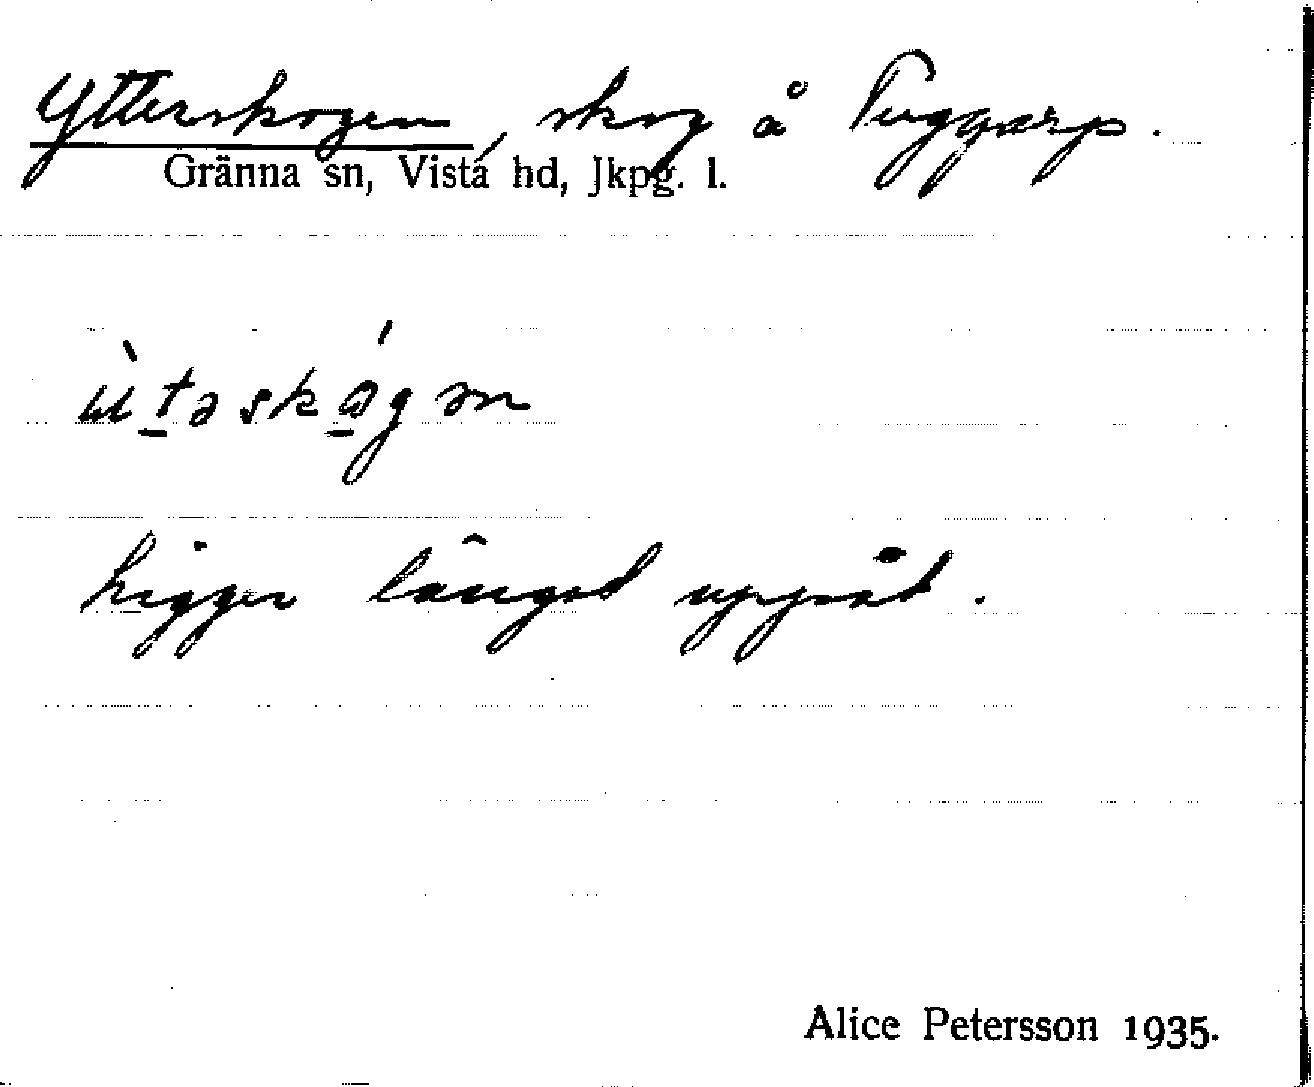 Ytterskogen, skog å Tuggarp.
Gränna sn, Vista hd, Jkpg. l.
ùt̲əskó̲gən
Ligger längst uppåt.
Alice Petersson 1935.